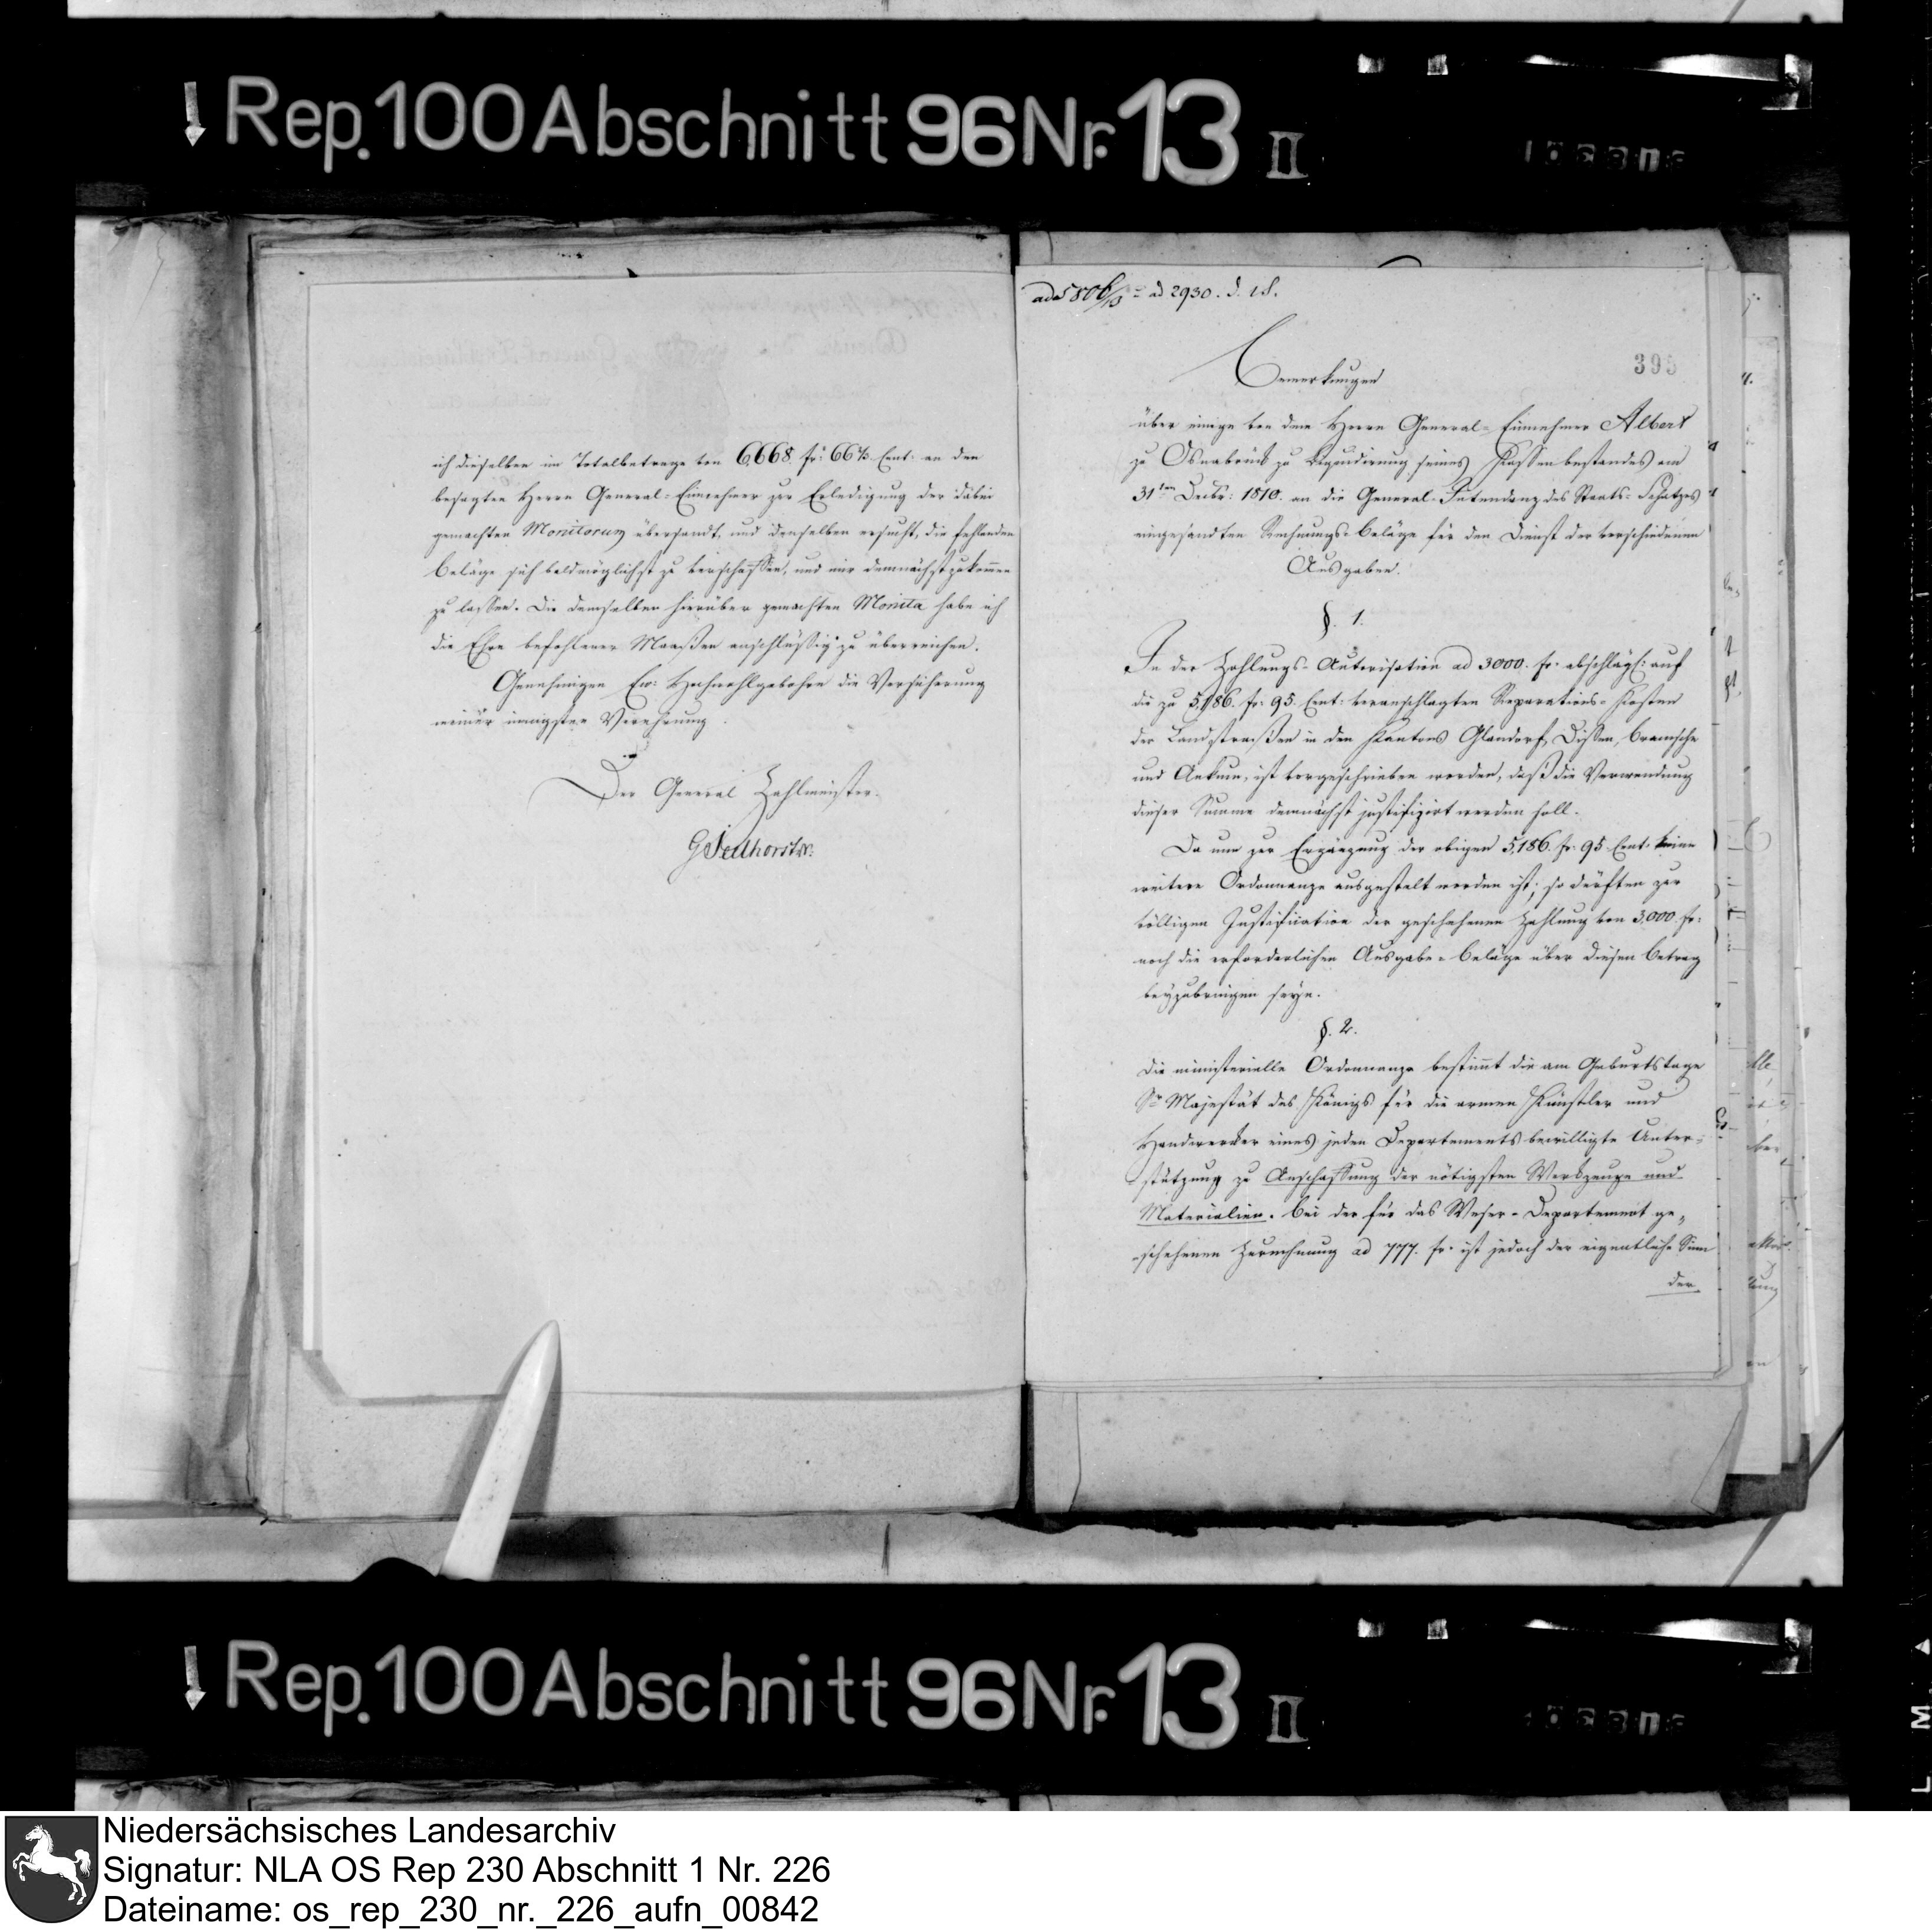 Rep. 100 Abschnitt 96 Nr. 13 II
ich dieselben im Totalbetrage von 6,668 fr: 66⅔ Cent: an den
besagten Herrn General-Einnehmer zur Erledigung der dabei
gemachten Monitorum übersandt, und denselben ersucht, die fehlenden
Beläge sich baldmöglichst zu verschaffen, und mir demnächst zukommen
zu lassen. Die demselben hierüber gemachten Monita habe ich
die Ehre befohlener Maaßen anschlüssig zu überreichen.
Genehmigen Ew: Hochwohlgebohren die Versicherung
meiner innigsten Verehrung.
Der General Zahlmeister.
ad 2930. d. 1 S.
395
Bemerkungen
über einige von dem Herrn General-Einnehmer Albert
zu Osnabrück zu Liquidirung seines Kassenbestandes am
31ten Decbr: 1810. an die General-Intendanz des Staats-Schatzes
eingesandten Rechnungs-Beläge für den Dienst der verschiedenen
Ausgaben.
§. 1.
In der Zahlungs-Autorisation ad 3000. fr. abschlägl: auf
die zu 5,186. fr: 95. Cent: veranschlagten Reparations-Kosten
der Landstraßen in den Kantons Glandorf, Dissen, Bramsche
und Ankum, ist vorgeschrieben worden, daß die Verwendung
dieser Summe demnächst justifizirt werden soll.
Da nun zur Ergänzung der obigen 5,186. fr. 95 Cent. keine
weitere Ordonnanze ausgestelt worden ist; so dürften zur
völligen Justification der geschehenen Zahlung von 3,000. fr:
noch die erforderlichen Ausgabe-Beläge über diesen Betrag
beyzubringen seyn.
§. 2.
Die ministerielle Ordonnanze bestimmt die am Geburtstage
Sr Majestät des Königs für die armen Künstler und
Handwercker eines jeden Departements bewilligte Unter-
stützung zu Anschaffung der nötigsten Werkzeuge und
Materialien. Bei der für das Weser-Departement ge-
-schehenen Zurechnung ad 777. fr. ist jedoch der eigentliche Sinn
der
Rep. 100 Abschnitt 96 Nr. 13 II
Niedersächsisches Landesarchiv
Signatur: NLA OS Rep 230 Abschnitt 1 Nr. 226
Dateiname: os_rep_230_nr._226_aufn_00842